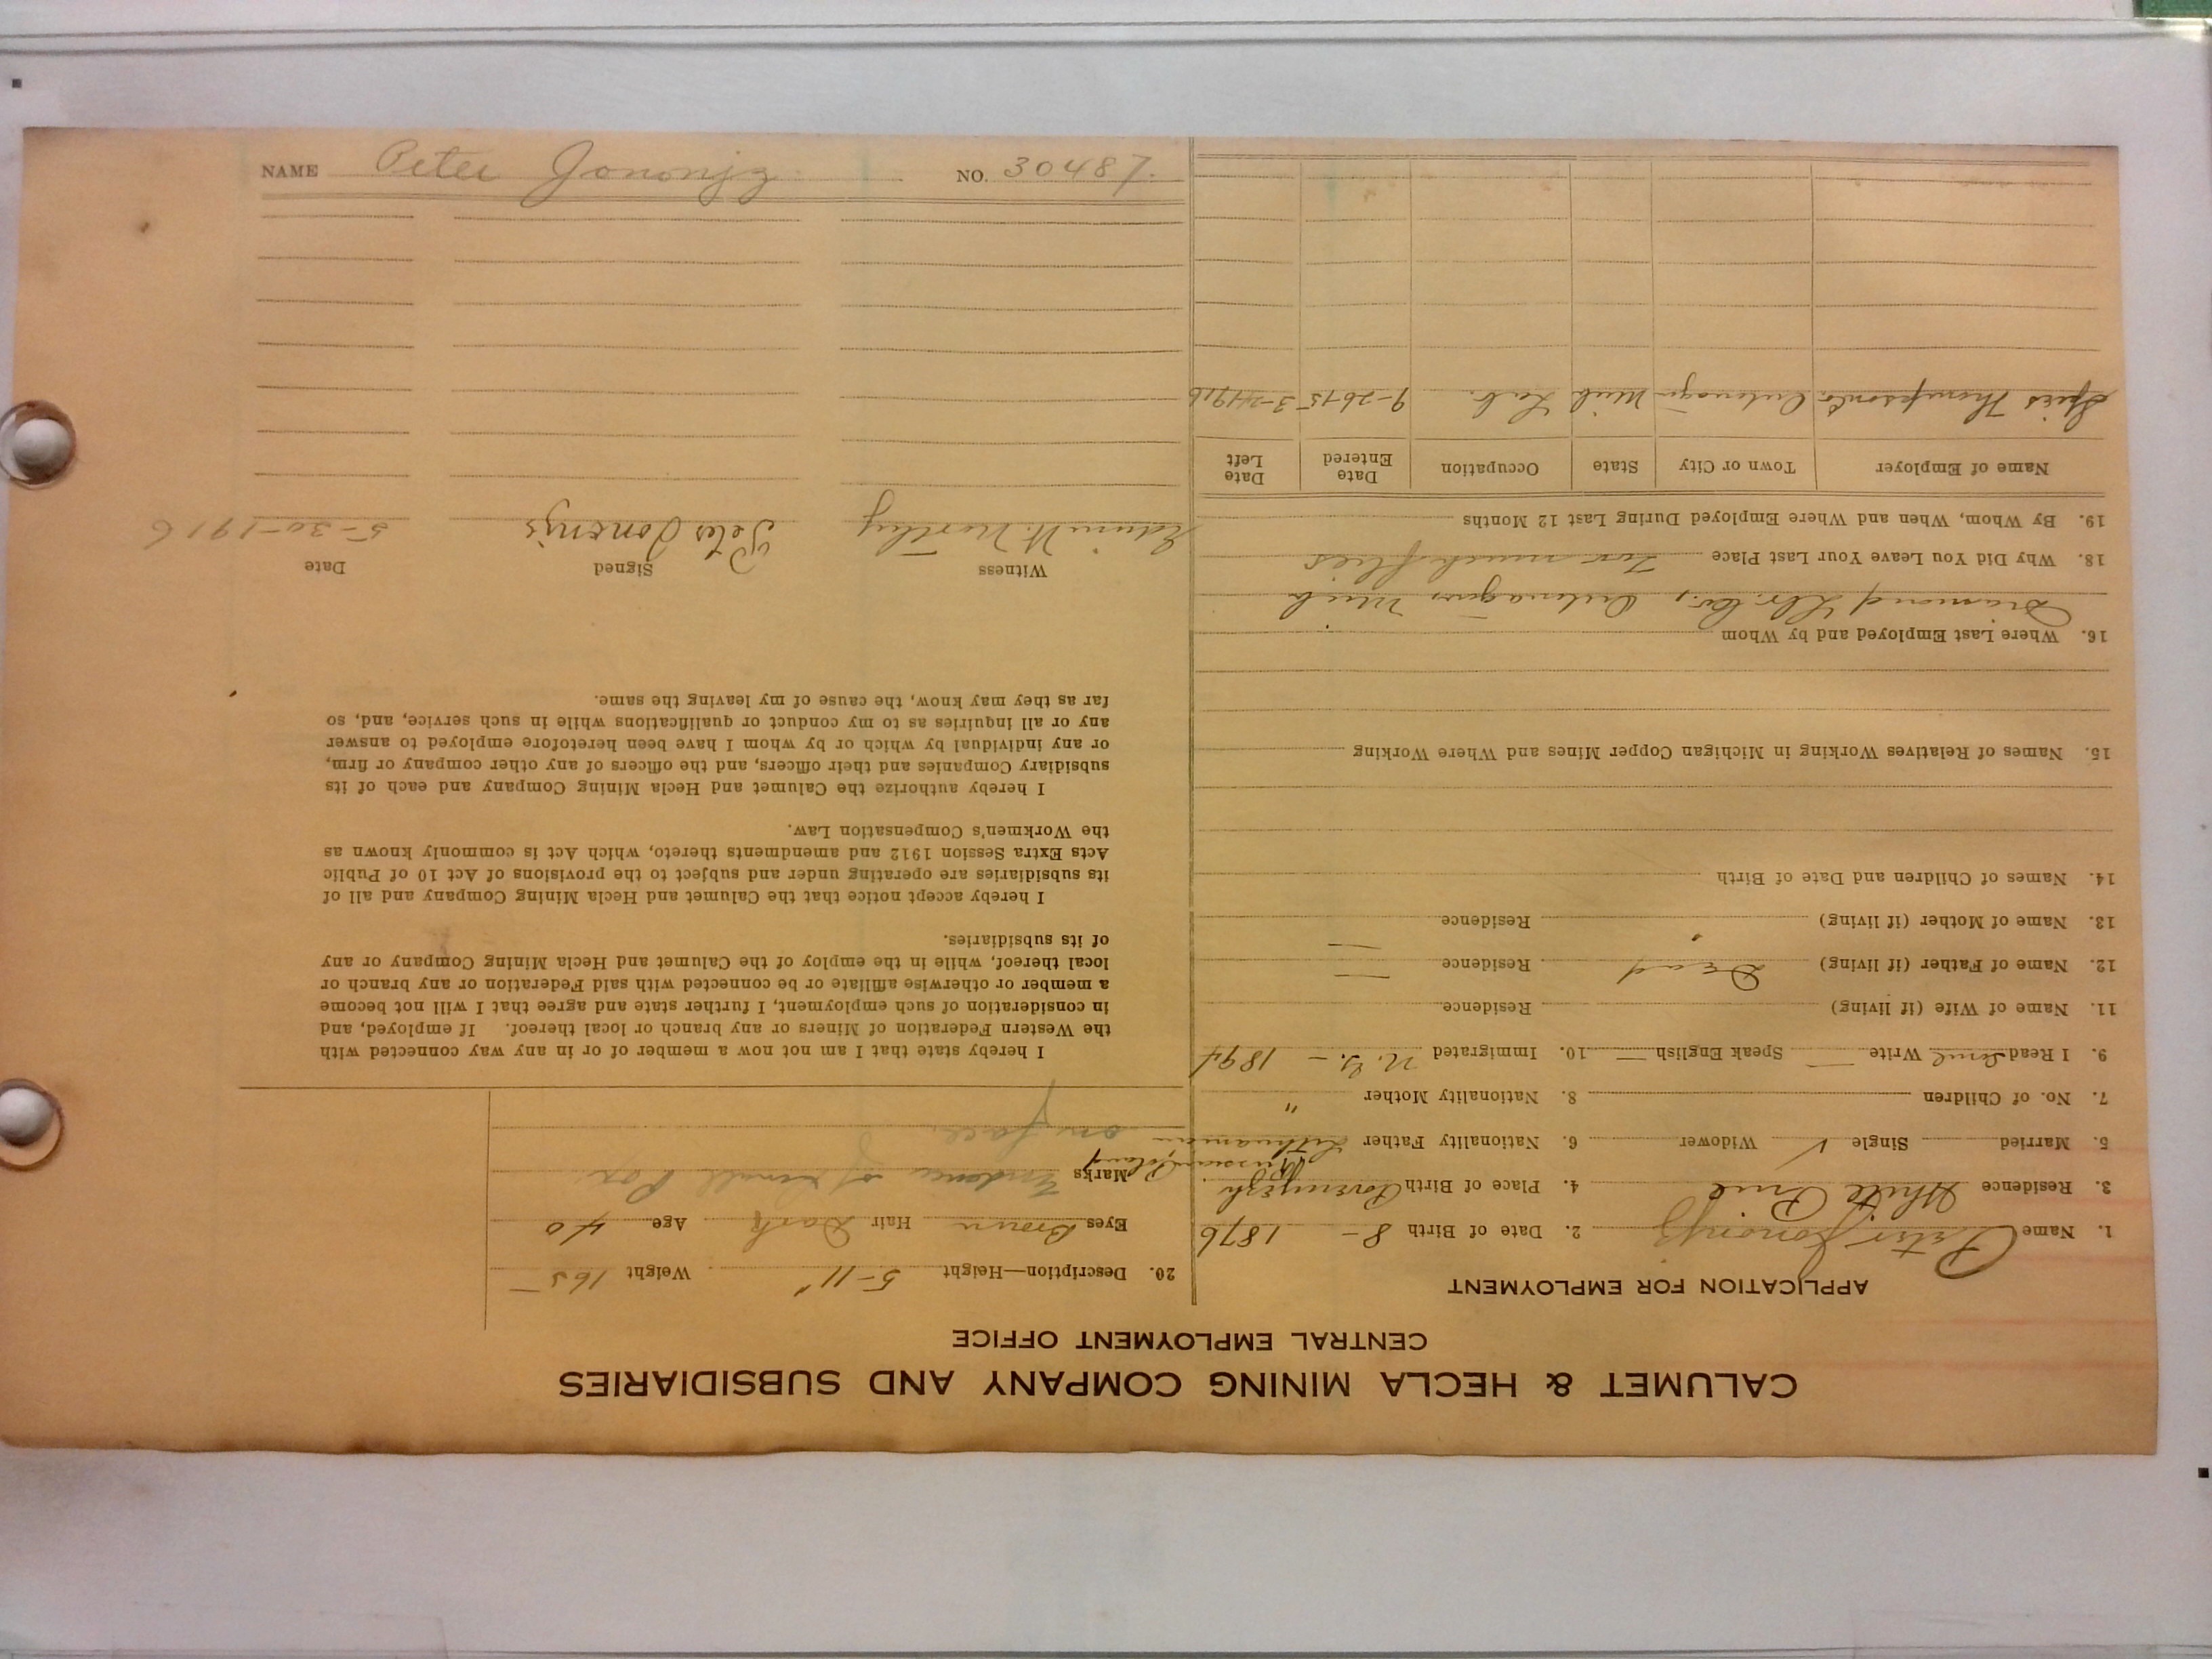 CALUMET & HECLA MINING COMPANY AND SUBSIDIARIES
CENTRAL EMPLOYMENT OFFICE
APPLICATION FOR EMPLOYMENT
1. Name Peter 2. Date of Birth 8 - 1876
3. Residence White Pine 4. Place of Birth
5. Married Single ✓ Widower 6. Nationality Father Lithuanian
7. No. of Children 8. Nationality Mother "
9. I Read Write — Speak English — 10. Immigrated U.S. - 1894
11. Name of Wife (if living) Residence
12. Name of Father (if living) Dead Residence —
13. Name of Mother (if living) " Residence —
14. Names of Children and Date of Birth
15. Names of Relatives Working in Michigan Copper Mines and Where Working
16. Where Last Employed and by Whom
Diamond Lbr. Co., Mich
18. Why Did You Leave Your Last Place Too much flies
19. By Whom, When and Where Employed During Last 12 Months
Name of Employer Town or City State Occupation Date Entered Date Left
Spies Thompson Co. Mich Lab. 9-26-15 3-24-1916
20. Description—Height 5-11" Weight 165
Eyes Brown Hair Dark Age 40
Marks Evidence of Small Pox
on face
I hereby state that I am not now a member of or in any way connected with
the Western Federation of Miners or any branch or local thereof. If employed, and
in consideration of such employment, I further state and agree that I will not become
a member or otherwise affiliate or be connected with said Federation or any branch or
local thereof, while in the employ of the Calumet and Hecla Mining Company or any
of its subsidiaries.
I hereby accept notice that the Calumet and Hecla Mining Company and all of
its subsidiaries are operating under and subject to the provisions of Act 10 of Public
Acts Extra Session 1912 and amendments thereto, which Act is commonly known as
the Workmen's Compensation Law.
I hereby authorize the Calumet and Hecla Mining Company and each of its
subsidiary Companies and their officers, and the officers of any other company or firm,
or any individual by which or by whom I have been heretofore employed to answer
any or all inquiries as to my conduct or qualifications while in such service, and, so
far as they may know, the cause of my leaving the same.
Witness Signed Date
Edwin W. Northey 5-30-1916
NAME Peter NO. 30487.